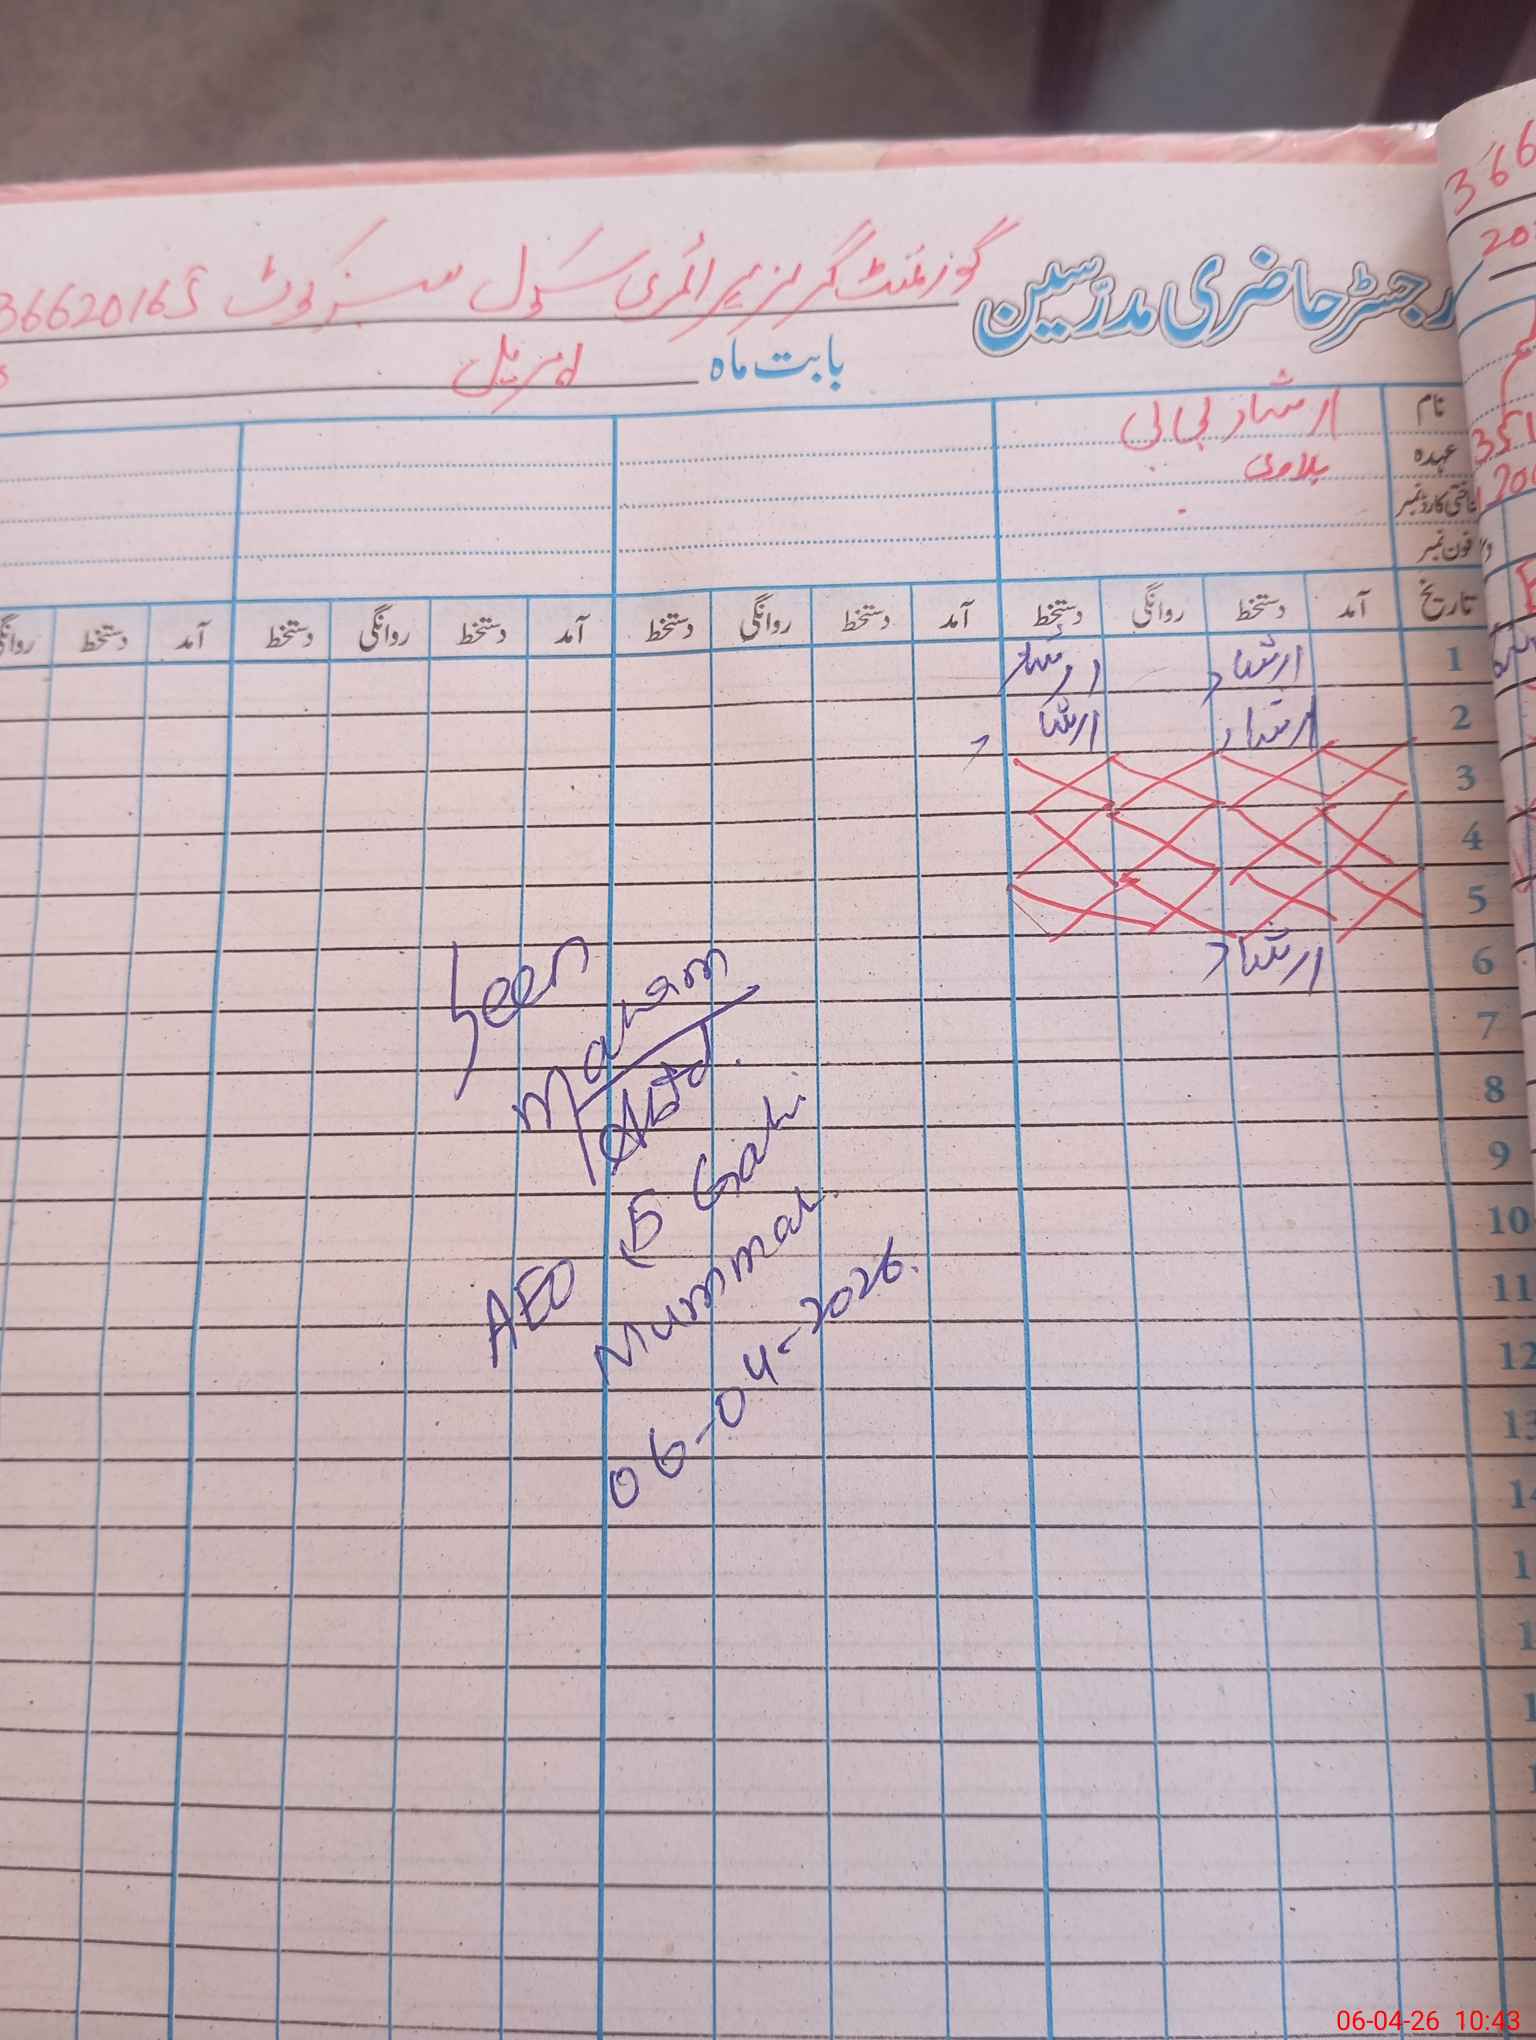 رجسٹر حاضری مدرّسین گورنمنٹ گرلز پرائمری سکول 36620165
بابت ماہ اپریل
نام ارشاد بی بی
عہدہ
فون نمبر
تاریخ آمد دستخط روانگی دستخط آمد دستخط روانگی دستخط آمد دستخط روانگی دستخط آمد دستخط روانگی
1 ارشاد ارشاد
2 ارشاد ارشاد
3
4
5
6 ارشاد
7
8
9
10
11
12
Seen
Maham
AEO
Mummar
06-04-2026.
366
20
351
200
06-04-26 10:43